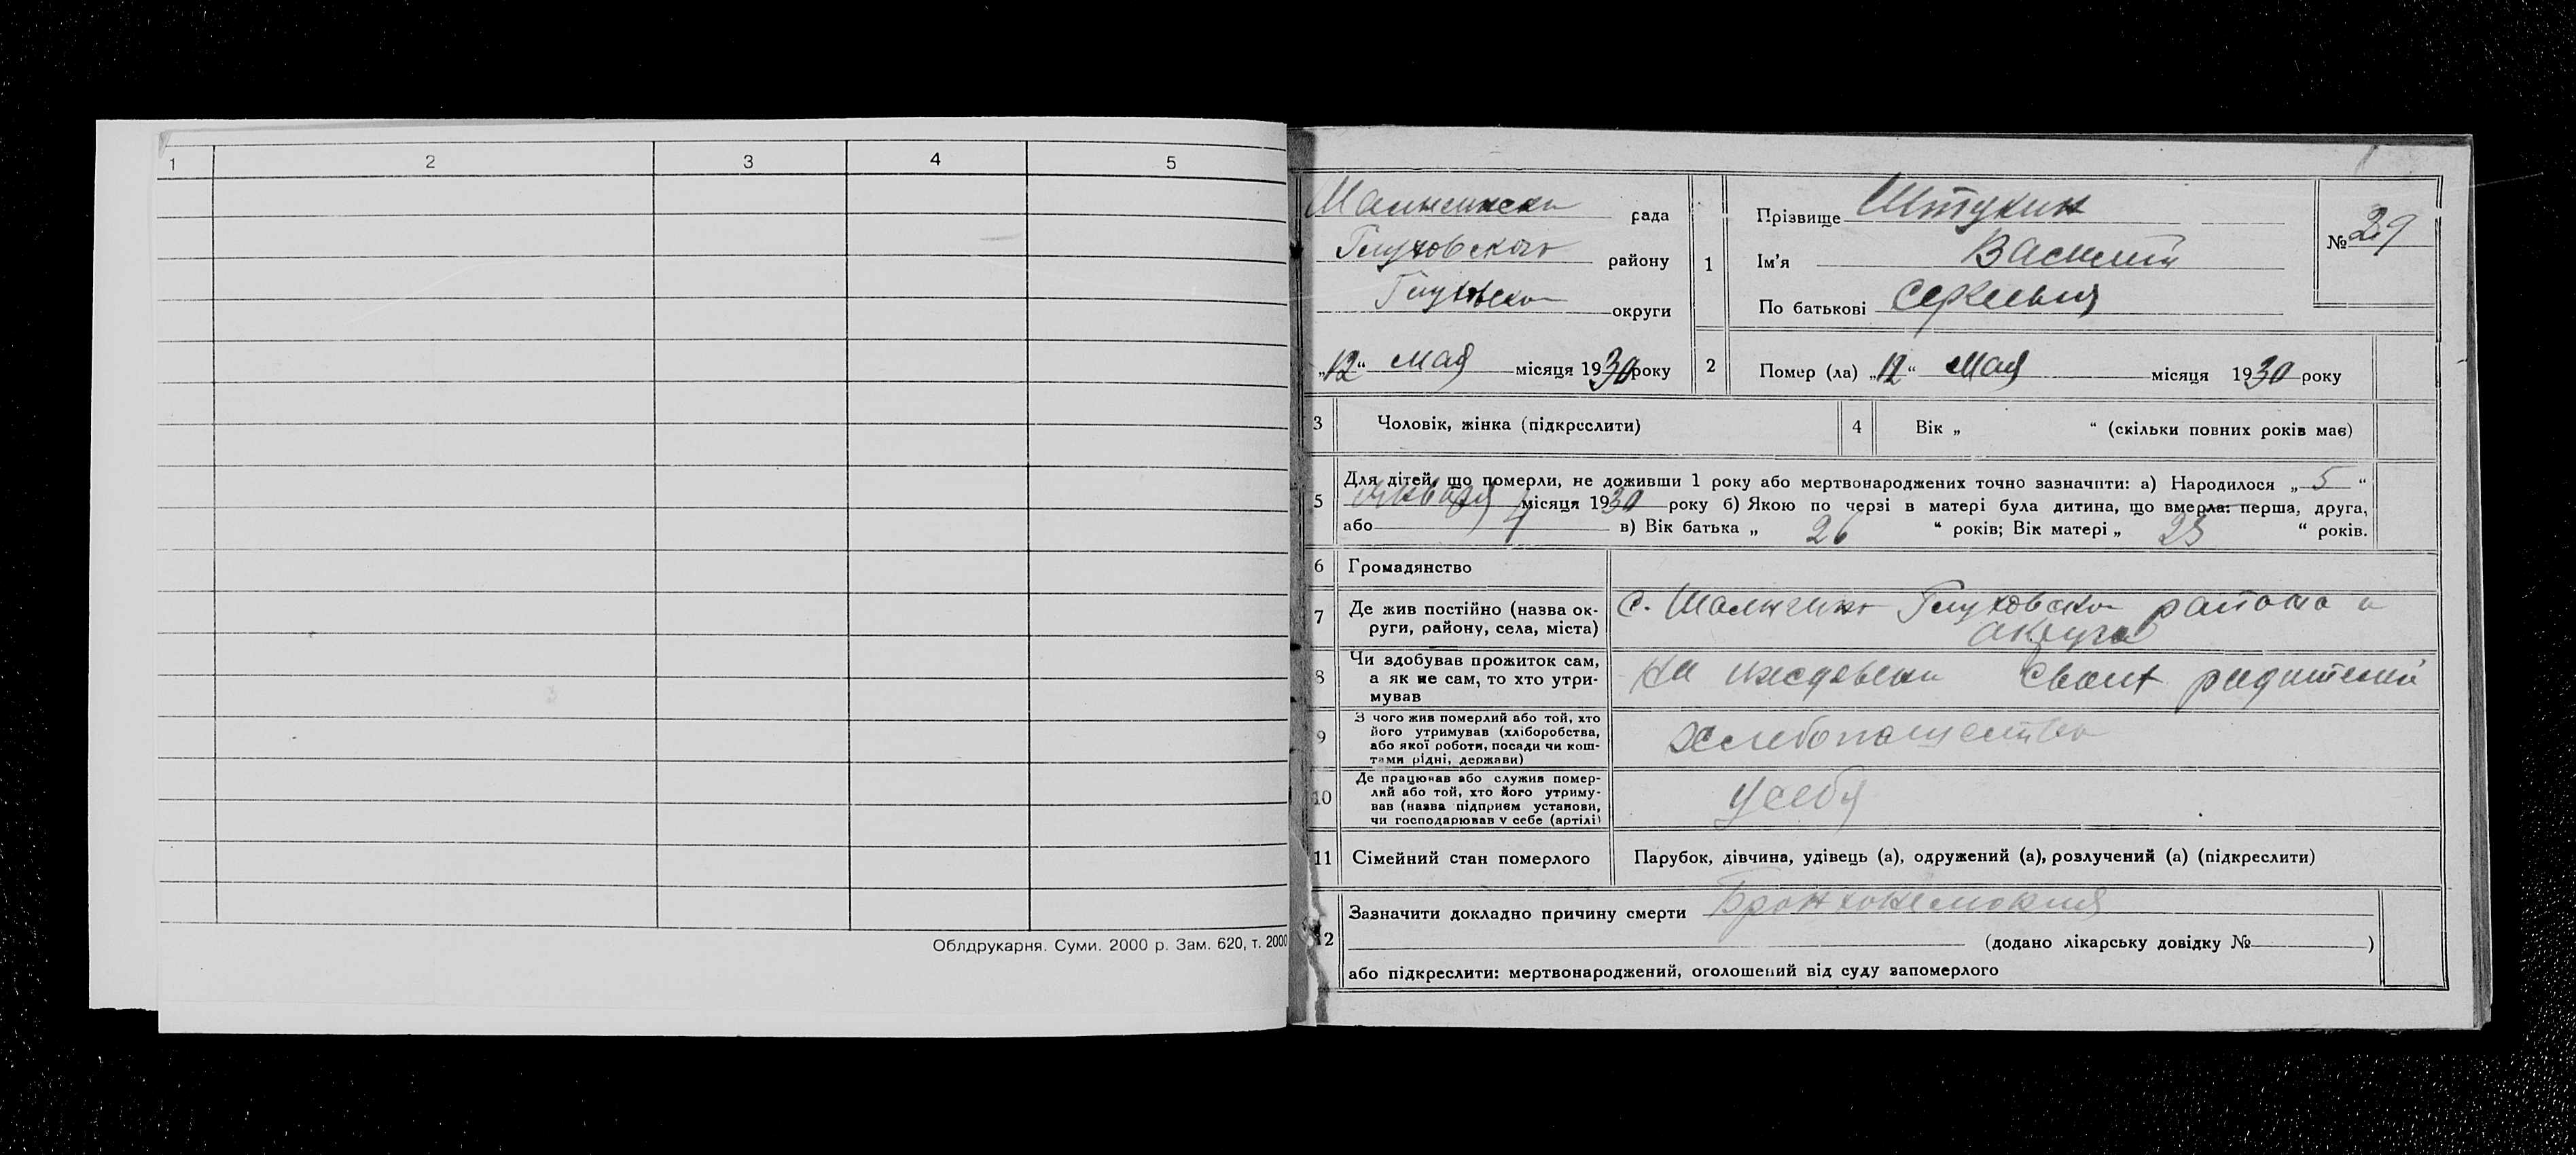 1 2 3 4 5
Облдрукарня. Суми. 2000 р. Зам. 620, т. 2000
рада
Глуховского району
округи
„12“ мая місяця 1930 року
1 Прізвище Штукин
Ім'я Василий
По батькові
№ 29
2 Помер (ла) „12“ мая місяця 1930 року
3 Чоловік, жінка (підкреслити)
4 Вік „ “ (скільки повних років має)
5 Для дітей, що померли, не доживши 1 року або мертвонароджених точно зазначити: а) Народилося „5“
января місяця 1930 року б) Якою по черзі в матері була дитина, що вмерла: перша, друга,
або 4 в) Вік батька „ 26 “ років; Вік матері „ 25 “ років.
6 Громадянство
7 Де жив постійно (назва ок-
руги, району, села, міста)
с. Глуховско района и
округа
8 Чи здобував прожиток сам,
а як не сам, то хто утри-
мував
на иждевени своих родителей
9 З чого жив померлий або той, хто
його утримував (хліборобства,
або якої роботи, посади чи кош-
тами рідні, держави)
хлебопашество
10 Де працював або служив помер-
лий або той, хто його утриму-
вав (назва підприєм установи,
чи господарював у себе (артілі)
у себя
11 Сімейний стан померлого
Парубок, дівчина, удівець (а), одружений (а), розлучений (а) (підкреслити)
12 Зазначити докладно причину смерти Бронхонемония
(додано лікарську довідку № )
або підкреслити: мертвонароджений, оголошений від суду запомерлого